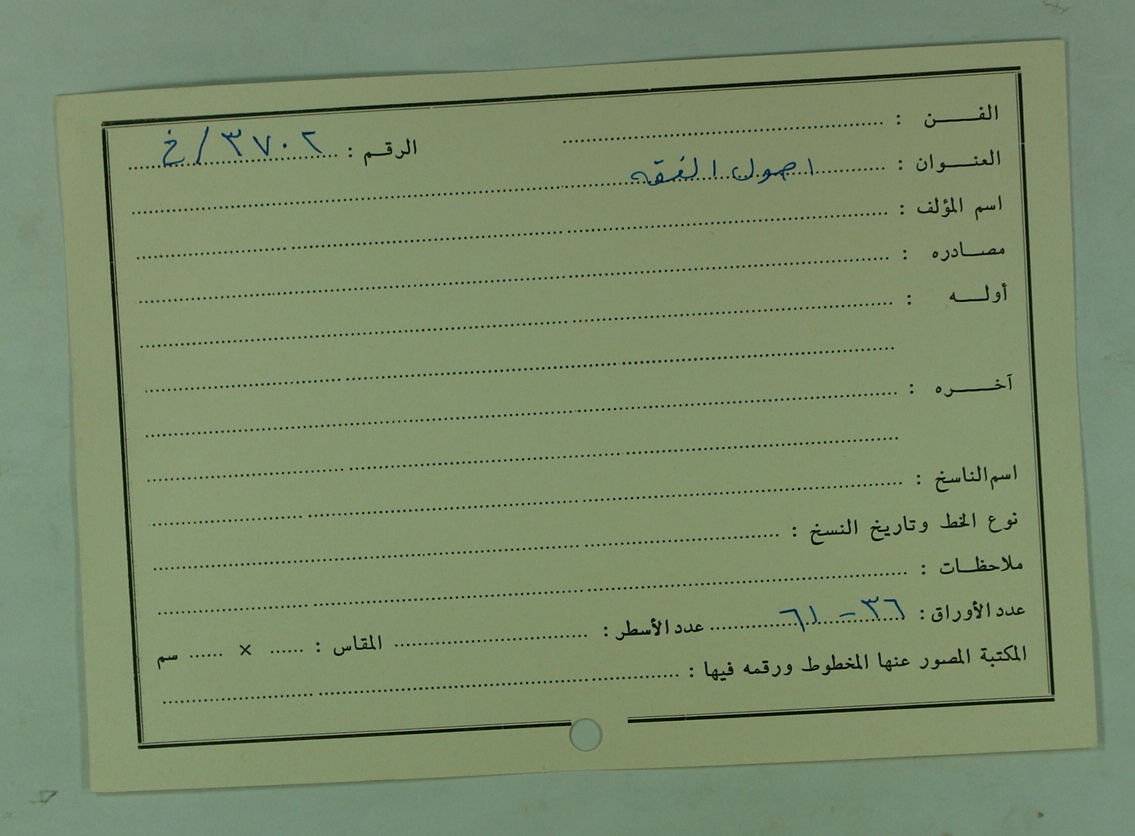 الفن :
الرقم : ٣٧٠٢ / خ
العنوان : اصول الفقه
اسم المؤلف :
مصادره :
أوله :
آخره :
اسم الناسخ :
نوع الخط وتاريخ النسخ :
ملاحظات :
عدد الأوراق : ٣٦ - ٦١ عدد الأسطر : المقاس : × سم
المكتبة المصور عنها المخطوط ورقمه فيها :